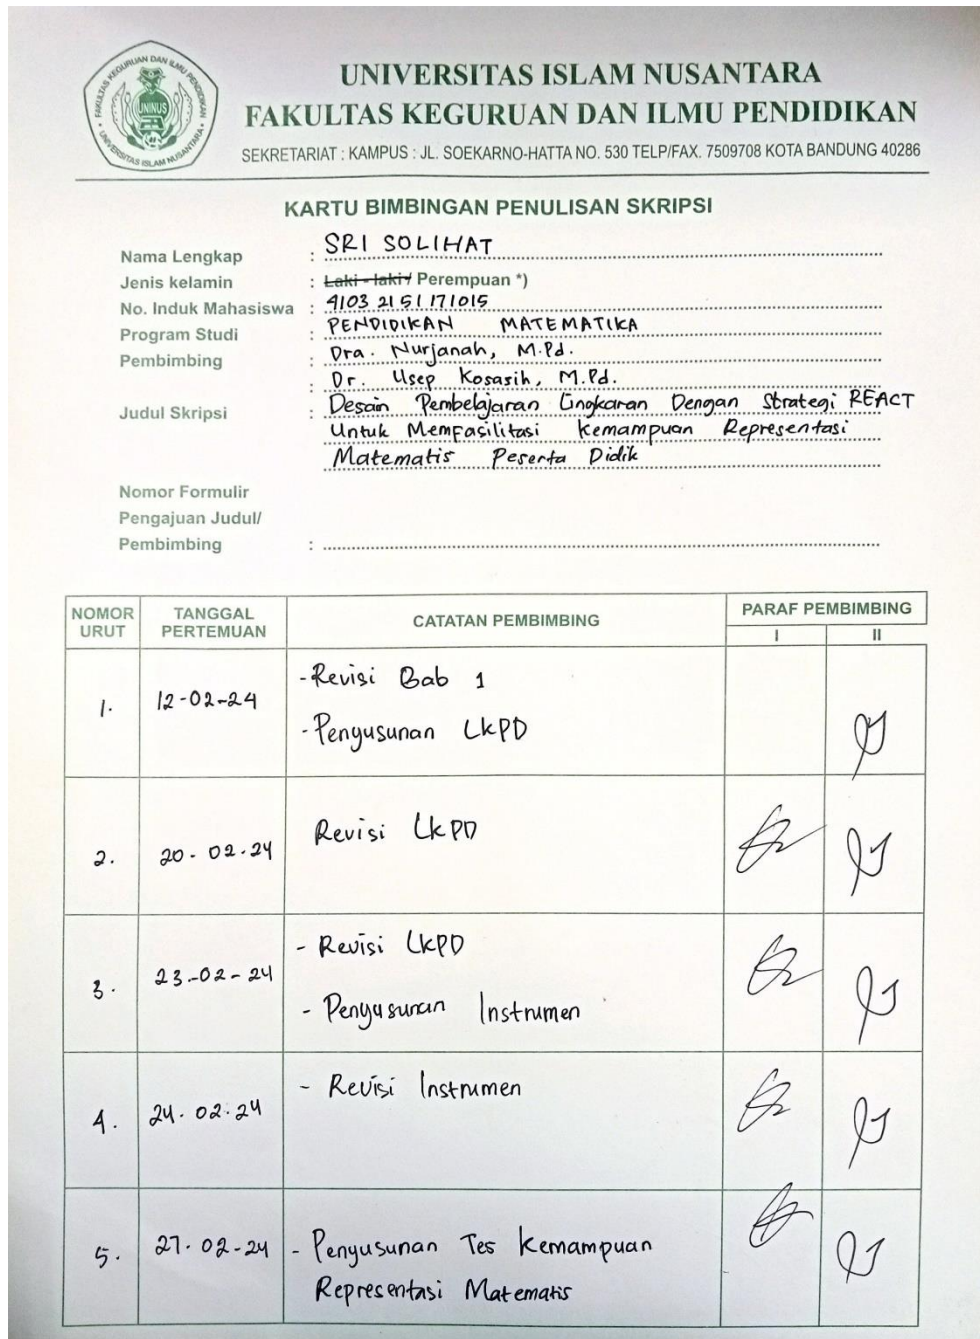 FAKULTAS KEGURUAN DAN ILMU PENDIDIKAN
UNINUS
UNIVERSITAS ISLAM NUSANTARA
UNIVERSITAS ISLAM NUSANTARA
FAKULTAS KEGURUAN DAN ILMU PENDIDIKAN
SEKRETARIAT : KAMPUS : JL. SOEKARNO-HATTA NO. 530 TELP/FAX. 7509708 KOTA BANDUNG 40286
KARTU BIMBINGAN PENULISAN SKRIPSI
Nama Lengkap : SRI SOLIHAT
Jenis kelamin : Laki - laki / Perempuan *)
No. Induk Mahasiswa : 4103 21 51 171015
Program Studi : PENDIDIKAN MATEMATIKA
Pembimbing : Dra. Nurjanah, M.Pd.
: Dr. Usep Kosasih, M.Pd.
Judul Skripsi : Desain Pembelajaran Lingkaran Dengan Strategi REACT
Untuk Memfasilitasi Kemampuan Representasi
Matematis Peserta Didik
Nomor Formulir
Pengajuan Judul/
Pembimbing :
NOMOR URUT TANGGAL PERTEMUAN CATATAN PEMBIMBING PARAF PEMBIMBING
I II
1. 12-02-24 - Revisi Bab 1
- Penyusunan LKPD
2. 20-02-24 Revisi LKPD
3. 23-02-24 - Revisi LKPD
- Penyusunan Instrumen
4. 24-02-24 - Revisi Instrumen
5. 27-02-24 - Penyusunan Tes Kemampuan
Representasi Matematis